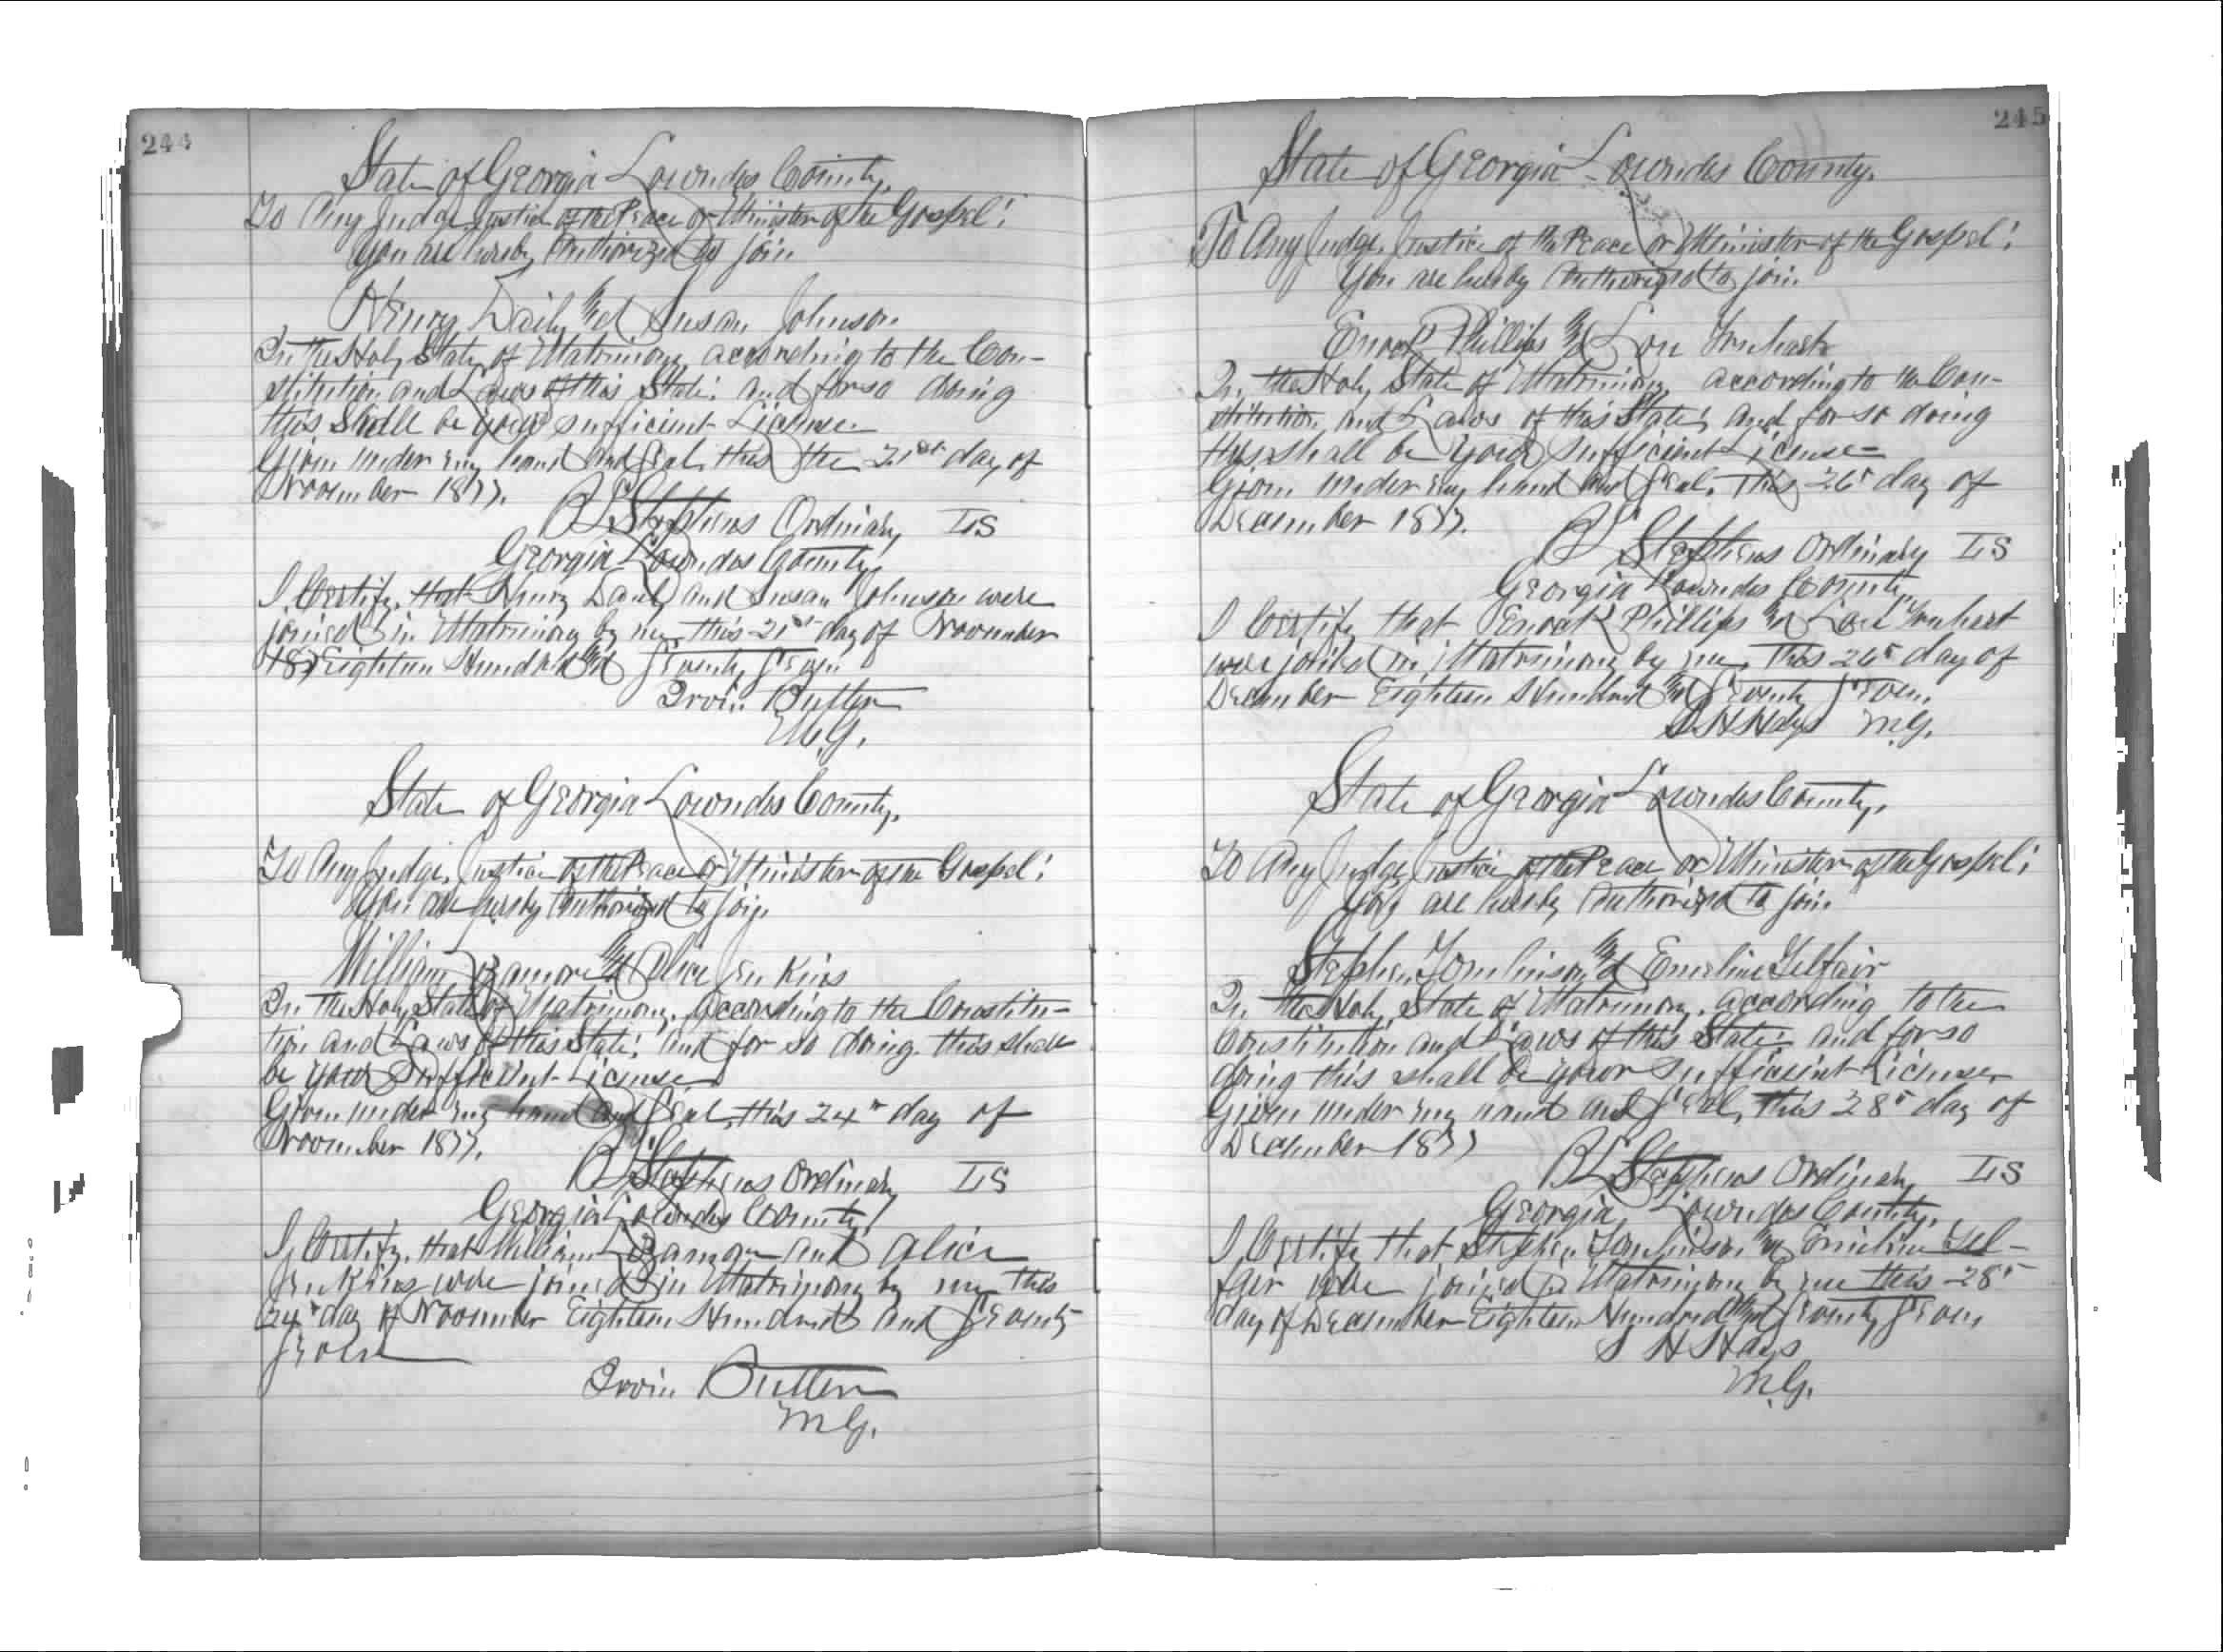 244
State of Georgia Lowndes County.
To Any Judge Justice of the Peace or Minister of the Gospel:
You are hereby Authorized to join
Henry Daily And Susan Johnson
In the Holy State of Matrimony according to the Con-
stitution and Laws of this State: and for so doing
this Shall be your sufficient License
Given under my hand and Seal this the 21st day of
November 1877.
Stephens Ordinary LS
Georgia Lowndes County,
I Certify, that Henry Daily and Susan Johnson were
joined in Matrimony by me, this 21st day of November
187 Eighteen Hundred And Seventy Seven
Irvin Butler
M.G.
State of Georgia Lowndes County.
To Any Judge, Justice of the Peace or Minister of the Gospel:
You are hereby Authorized to join
William And Alice Jenkins
In the Holy State of Matrimony, According to the Constitu-
tion and Laws of this State: And for so doing this shall
be your Sufficient License
Given under my hand and Seal, this 24th day of
November 1877.
Stephens Ordinary LS
Georgia Lowndes County
I, Certify, that William and Alice
Jenkins were joined in Matrimony by me this
24th day of November Eighteen Hundred and Seventy
Seven
Irvin Butler
M.G.
245
State of Georgia Lowndes County.
To Any Judge, Justice of the Peace or Minister of the Gospel:
You are hereby Authorized to join
Enoch Phillips And Lou
In the Holy State of Matrimony, according to the Con-
stitution and Laws of this State; and for so doing
this shall be your sufficient License
Given under my hand and Seal, this 26th day of
December 1877.
Stephens Ordinary LS
Georgia Lowndes County,
I Certify that Enoch Phillips And Lou
were joined in Matrimony by me, this 26th day of
December Eighteen Hundred And Seventy Seven,
S H Hays M.G.
State of Georgia Lowndes County,
To Any Judge Justice of the Peace or Minister of the Gospel:
You are hereby Authorized to join
Stephen Tomlinson And Emeline Telfair
In the Holy State of Matrimony, according to the
Constitution and Laws of this State: and for so
doing this shall be your sufficient License
Given under my hand and Seal, this 28th day of
December 1877
Stephens Ordinary LS
Georgia, Lowndes County,
I, Certify that Stephen Tomlinson And Emeline Tel-
fair were joined in Matrimony by me this 28th
day of December Eighteen Hundred And Seventy Seven
S H Hays
M.G.